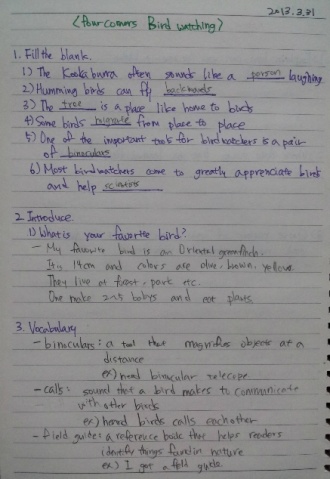 2013.3.31
<Four corners Bird watching>
1. Fill the blank.
1) The Kookaburra often sounds like a person laughing
2) Humming birds can fly backwards
3) The tree is a place like home to birds
4) Some birds migrate from place to place
5) One of the important tools for birdwatchers is a pair
of binoculars
6) Most birdwatchers come to greatly appreciate birds
and help scientists
2. Introduce.
1) What is your favorite bird?
- My favorite bird is an Oriental greenfinch.
It's 14cm and colors are olive, brown, yellow.
They live at forest, park etc.
One make 2~5 babys and eat plants.
3. Vocabulary
- binoculars: a tool that magnifies objects at a
distance
ex) head binocular telescope
- calls: sound that a bird makes to communicate
with other birds
ex) hand birds calls eachother
- field guide: a reference book that helps readers
identify things found in nature
ex) I got a field guide.